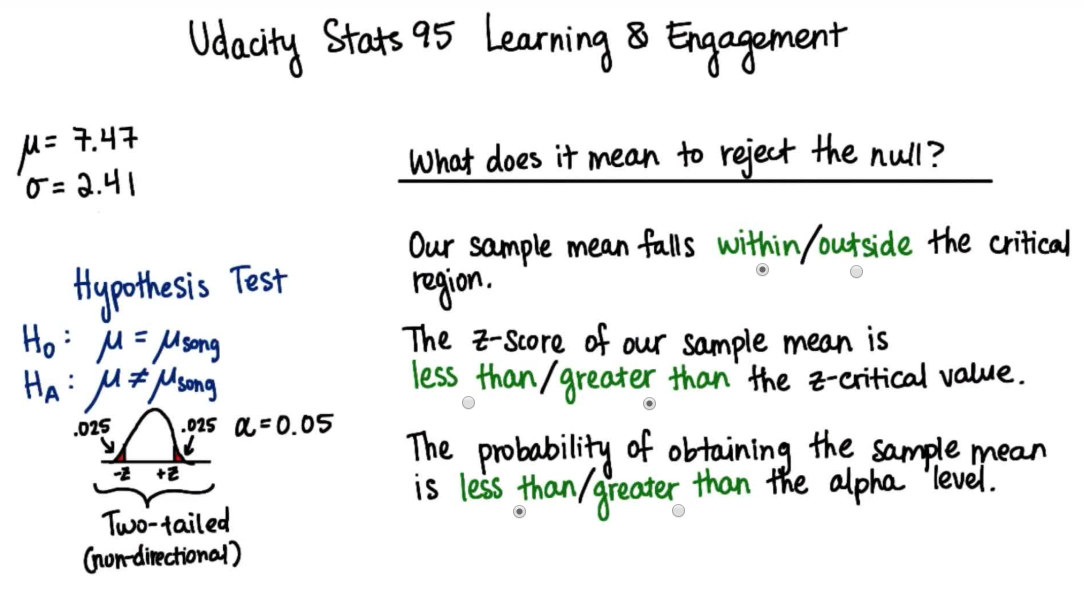 Udacity Stats 95 Learning & Engagement
μ = 7.47
σ = 2.41
Hypothesis Test
H₀: μ = μsong
Hᴀ: μ ≠ μsong
.025 .025 α = 0.05
-z +z
Two-tailed
(non-directional)
What does it mean to reject the null?
Our sample mean falls within/outside the critical
region.
The z-score of our sample mean is
less than/greater than the z-critical value.
The probability of obtaining the sample mean
is less than/greater than the alpha level.